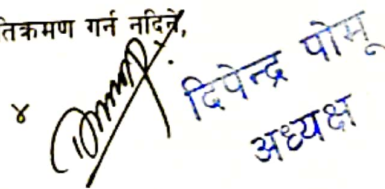 तिक्रमण गर्न नदिने,
४
दिपेन्द्र पोमू
अध्यक्ष